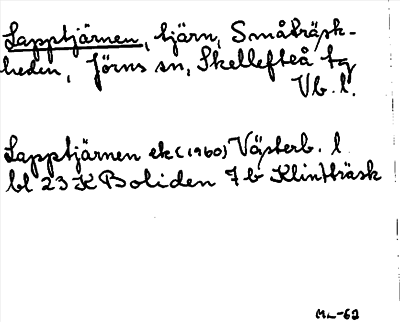 Lapptjärnen, tjärn, Småträsk-
heden, Jörns sn, Skellefteå tg
Vb. l.
Lapptjärnen ek (1960) Västerb. l
bl 23 K Boliden 7 b Klintträsk
ML-62